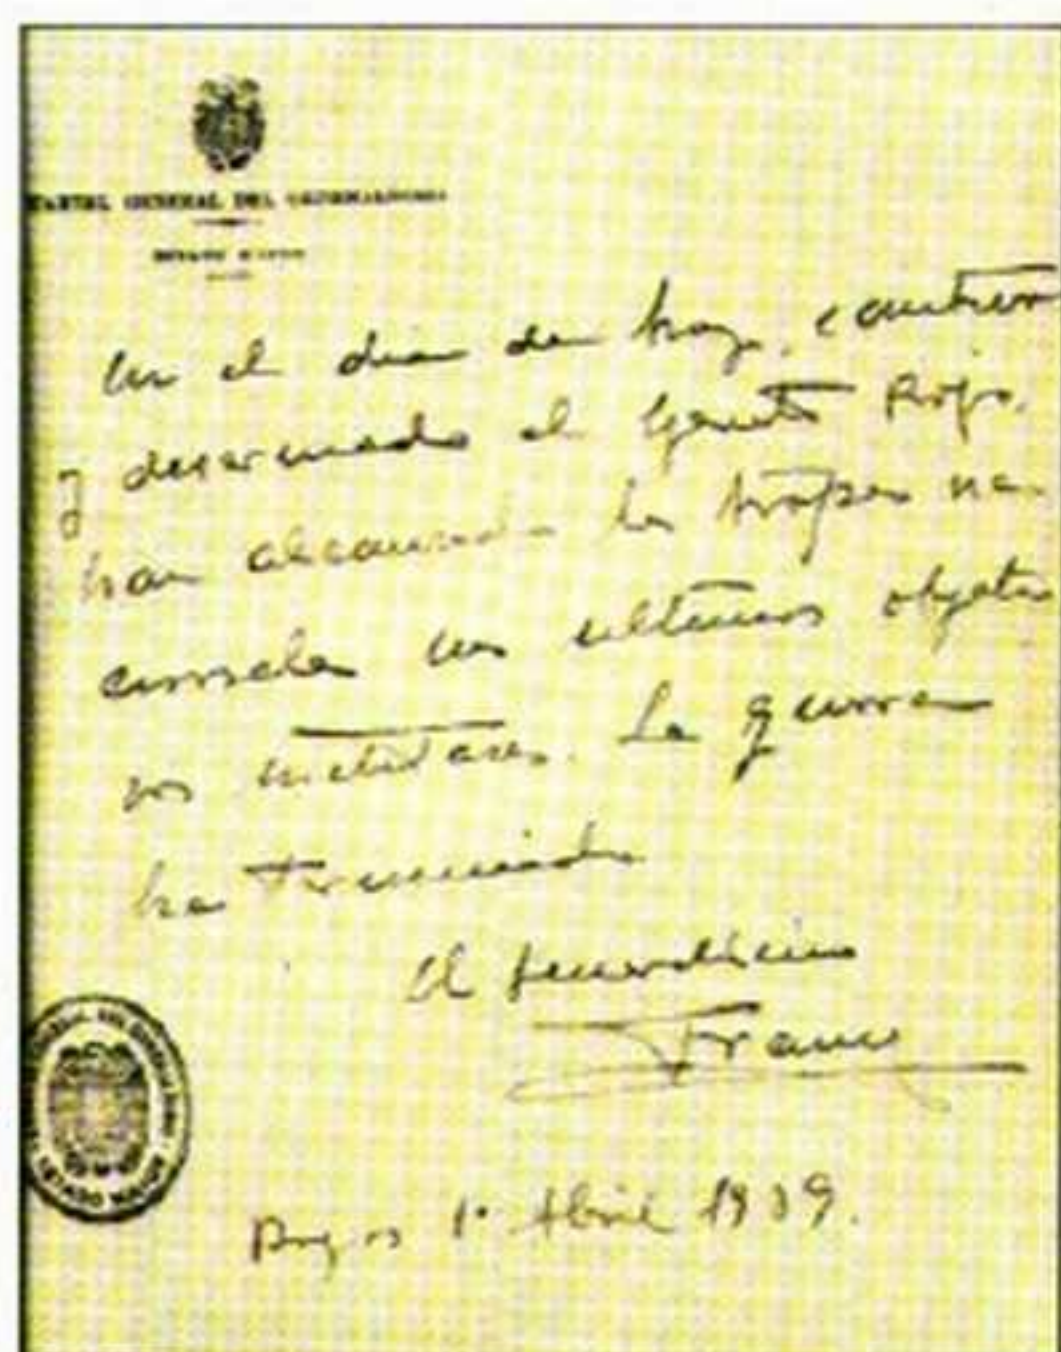 CUARTEL GENERAL DEL GENERALISIMO
ESTADO MAYOR
En el dia de hoy, cautivo
y desarmado el Ejercito Rojo,
han alcanzado las tropas na-
cionales sus ultimos objeti-
vos militares. La guerra
ha terminado
El Generalisimo
Franco
Burgos 1º Abril 1939.
ESTADO MAYOR